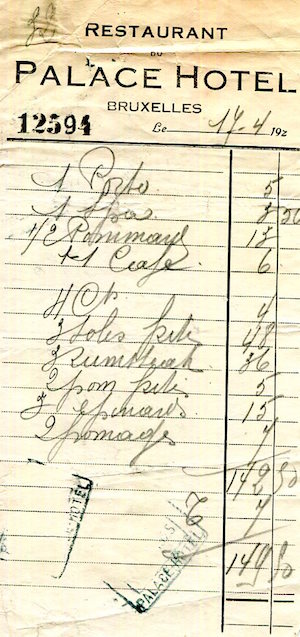 RESTAURANT
DU
PALACE HOTEL
BRUXELLES
12594 Le 17-4 192
1 Porto 5
1 Spa 3 50
1/2 Pommard 13
1 Café 6
4 Cts 4
3 Soles frite 48
3 Rumsteak 36
2 pom frites 5
3 epinards 15
2 fromages 7
142 50
7
149 50
HOTEL
PALACE HOTEL